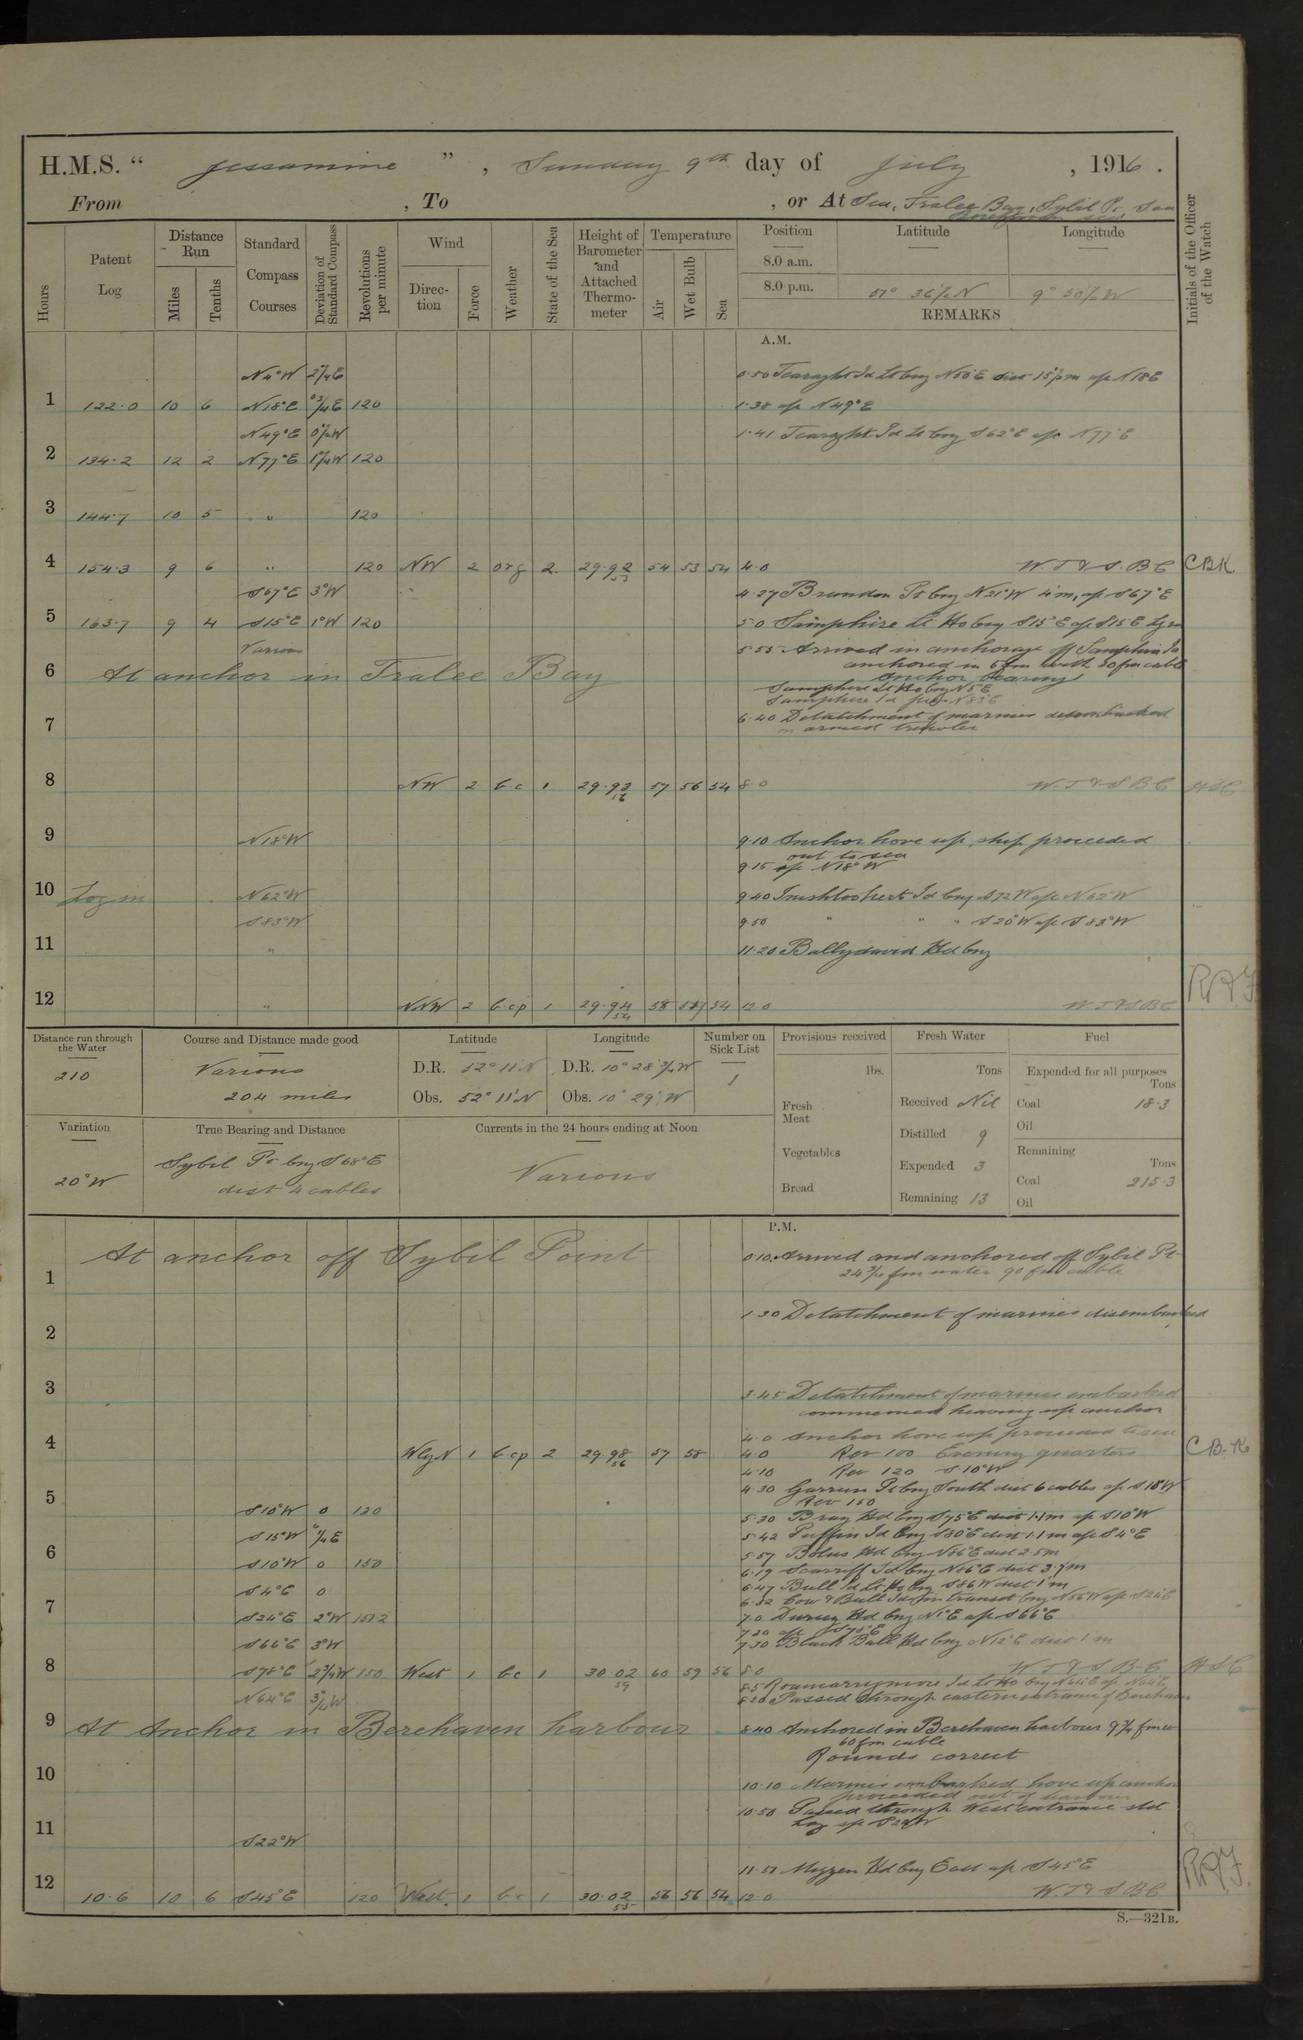 H.M.S. " Jessamine ", Sunday 9th day of July, 1916.
From , To , or At Sea, Tralee Bay, Sybil Pt. Sea
Berehaven Sea
Hours
Patent Log
Distance Run
Miles
Tenths
Standard Compass Courses
Deviation of Standard Compass
Revolutions per minute
Wind
Direction
Force
Weather
State of the Sea
Height of Barometer and Attached Thermometer
Temperature
Air
Wet Bulb
Sea
Position
Latitude
Longitude
8.0 a.m.
8.0 p.m. 51° 36½ N 9° 50½ W
REMARKS
Initials of the Officer of the Watch
A.M.
N4°W 2¼E 0.50 Tearaght Id Lt brg N50°E dist 15½m a/c N18E
1 122.0 10 6 N18°E 0¾E 120 1.38 a/c N49°E
N49°E 0½W 1.41 Tearaght Id Lt brg S62°E a/c N77°E
2 134.2 12 2 N77°E 1¼W 120
3 144.7 10 5 " 120
4 154.3 9 6 " 120 NW 2 org 2 29.92 53 54 53 54 4.0 W.T & S. BC CBK
S67°E 3°W 4.27 Brandon Pt brg N21°W 4m, a/c S67°E
5 163.7 9 4 S15°E 1°W 120 5.0 Samphire Lt Ho brg S15°E a/c S15E
Various 5.55 Arrived in anchorage off Samphire Id
6 At anchor in Tralee Bay anchored in 5fm with 30fm cable
Anchor bearings
Samphire Lt Ho brg N5°E
7 6.40 Detatchment of marines disembarked
in armed trawler
8 NW 2 b.c 1 29.93 56 57 56 54 8.0 W.T & S BC HSC
9 N18°W 9.10 Anchor hove up, ship proceeded
out to sea
9.15 a/c N18°W
10 Log in N62°W 9.40 Inishtooskert Id brg S72W a/c N62°W
S83°W 9.50 " " " S20°W a/c S83°W
11 " 11.20 Ballydavid Hd brg
12 " NNW 2 b.cp 1 29.94 54 58 54 12.0 W.T & S BC
Distance run through the Water
210
Course and Distance made good
Various
204 miles
Latitude
D.R. 52° 11' N
Obs. 52° 11' N
Longitude
D.R. 10° 28½' W
Obs. 10° 29' W
Number on Sick List
1
Provisions received
lbs.
Fresh Meat
Vegetables
Bread
Fresh Water
Tons
Received Nil
Distilled 9
Expended 3
Remaining 13
Fuel
Expended for all purposes
Tons
Coal 18.3
Oil
Remaining
Tons
Coal 215.3
Oil
Variation
20°W
True Bearing and Distance
Sybil Pt brg S68°E
dist 4 cables
Currents in the 24 hours ending at Noon
Various
P.M.
At anchor off Sybil Point 0.10 Arrived and anchored off Sybil Pt
1 fm water 90 fm cable
1.30 Detatchment of marines disembarked
2
3 3.45 Detatchment of marines embarked
commenced heaving up anchor
4.0 Anchor hove up proceeded to sea
4 WbyN 1 b.cp 2 29.98 56 57 58 4.0 Rev 100 Evening quarters CB.K
4.10 Rev 120 S10°W
5 4.30 South dist 6 cables a/c S15W
Rev 150
S10°W 0 120 5.30 Bray Hd brg S75°E dist 1.1m a/c S10°W
S15°W 0¼E 5.42 Puffin Id brg S80°E dist 1.1m a/c S4°E
6 S10°W 0 150 5.57 Bolus Hd brg N86°E dist 2.5m
6.19 Scarriff Id brg N86°E dist 3.7m
S4°E 0 6.47 Bull Id Lt Ho brg S86W dist 1m
7 S24°E 2°W 7.0 Dursey Hd brg N1°E a/c S66°E
7.20 a/c S78°E
S66°E 3°W 7.30 Black Ball Hd brg N12°E dist 1m
8 S78°E 2¾W 150 West 1 b.c 1 30.02 59 60 59 56 8.0 W.T & S B.C HSC
N64°E 8.5 Roancarrigmore Id Lt Ho brg N64E a/c N64E
8.20 Passed through eastern entrance of Berehaven
9 At Anchor in Berehaven harbour 8.40 Anchored in Berehaven harbour
60fm cable
Rounds correct
10 10.10 Marines embarked hove up anchor
proceeded out of harbour
10.50 Passed through West entrance std
11 S22°W
11.51 Mizzen Hd brg East a/c S45°E
12 10.6 10 6 S45°E 120 West 1 b.c 1 30.02 55 56 56 54 12.0 W.T & S BC
S.—321B.